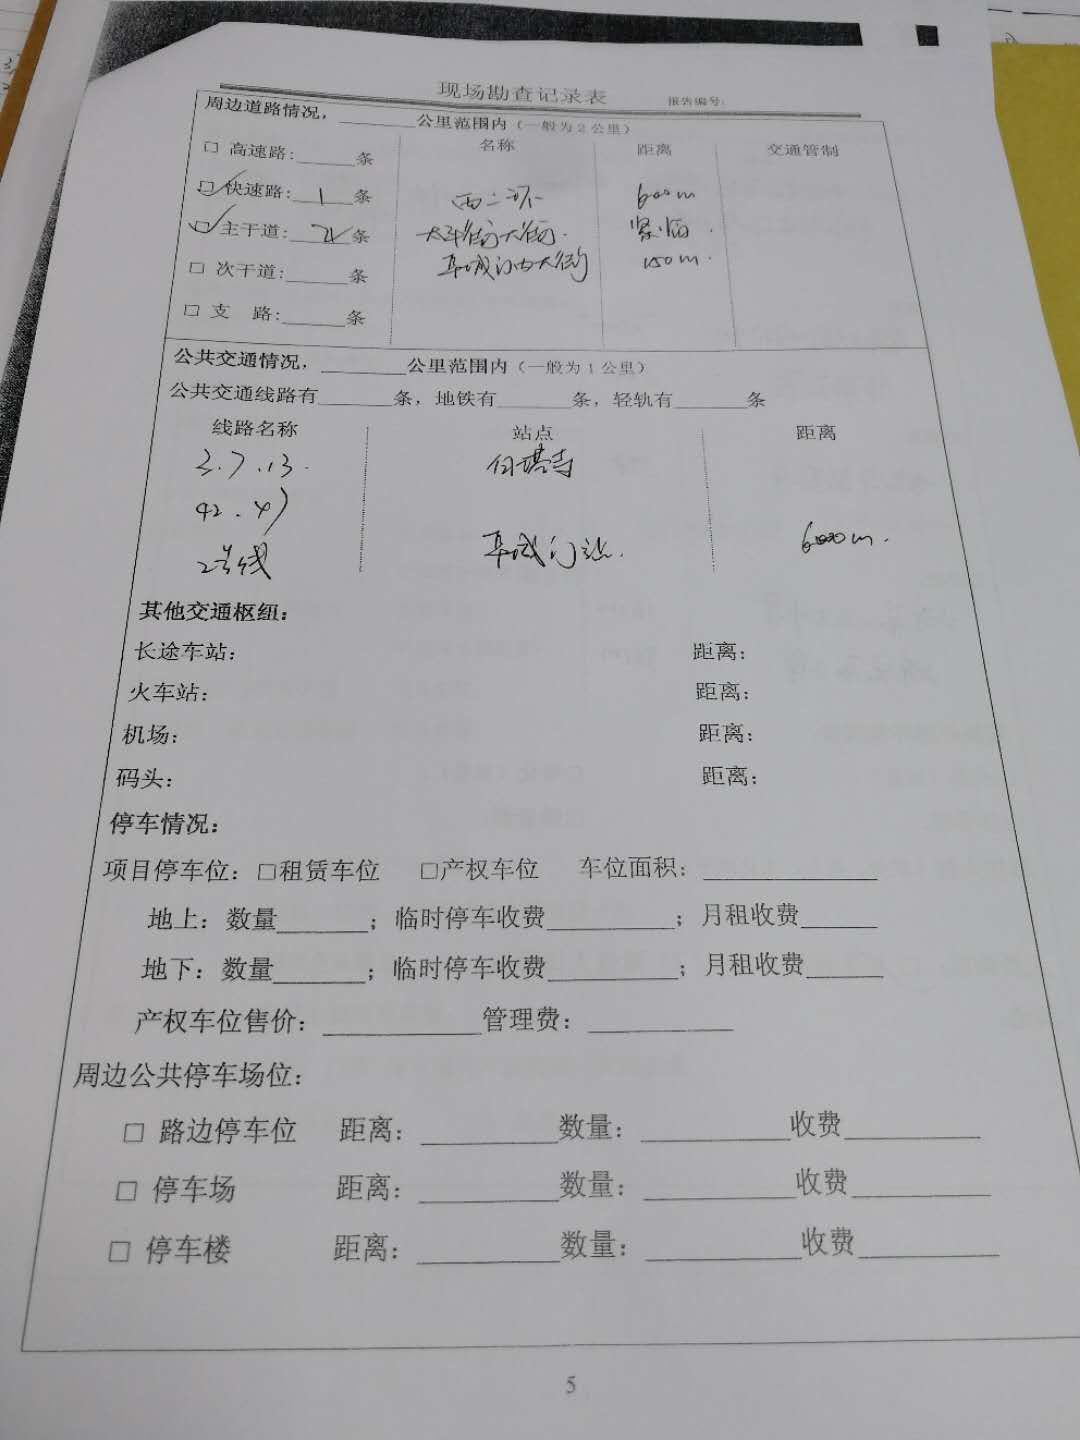 现场勘查记录表 报告编号:
周边道路情况，______公里范围内（一般为2公里）
名称 距离 交通管制
□ 高速路:____条
☑ 快速路: 1 条 西二环 600m
☑ 主干道: 2 条 大街 紧临
阜成门内大街 150m
□ 次干道:____条
□ 支 路:____条
公共交通情况，______公里范围内（一般为1公里）
公共交通线路有______条，地铁有______条，轻轨有______条
线路名称 站点 距离
3.7.13. 白塔寺
42.47
2号线 阜成门站. 600m.
其他交通枢纽：
长途车站： 距离：
火车站： 距离：
机场： 距离：
码头： 距离：
停车情况：
项目停车位：□租赁车位 □产权车位 车位面积：____________
地上：数量______；临时停车收费_________；月租收费_____
地下：数量______；临时停车收费_________；月租收费_____
产权车位售价：___________管理费：__________
周边公共停车场位：
□ 路边停车位 距离：_________数量：__________收费_________
□ 停车场 距离：_________数量：__________收费_________
□ 停车楼 距离：_________数量：__________收费_________
5